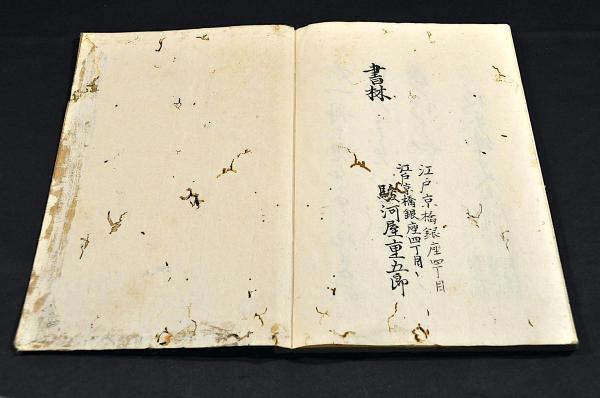 書林
江戸京橋銀座四丁目
江戸京橋銀座四丁目
駿河屋重五郎